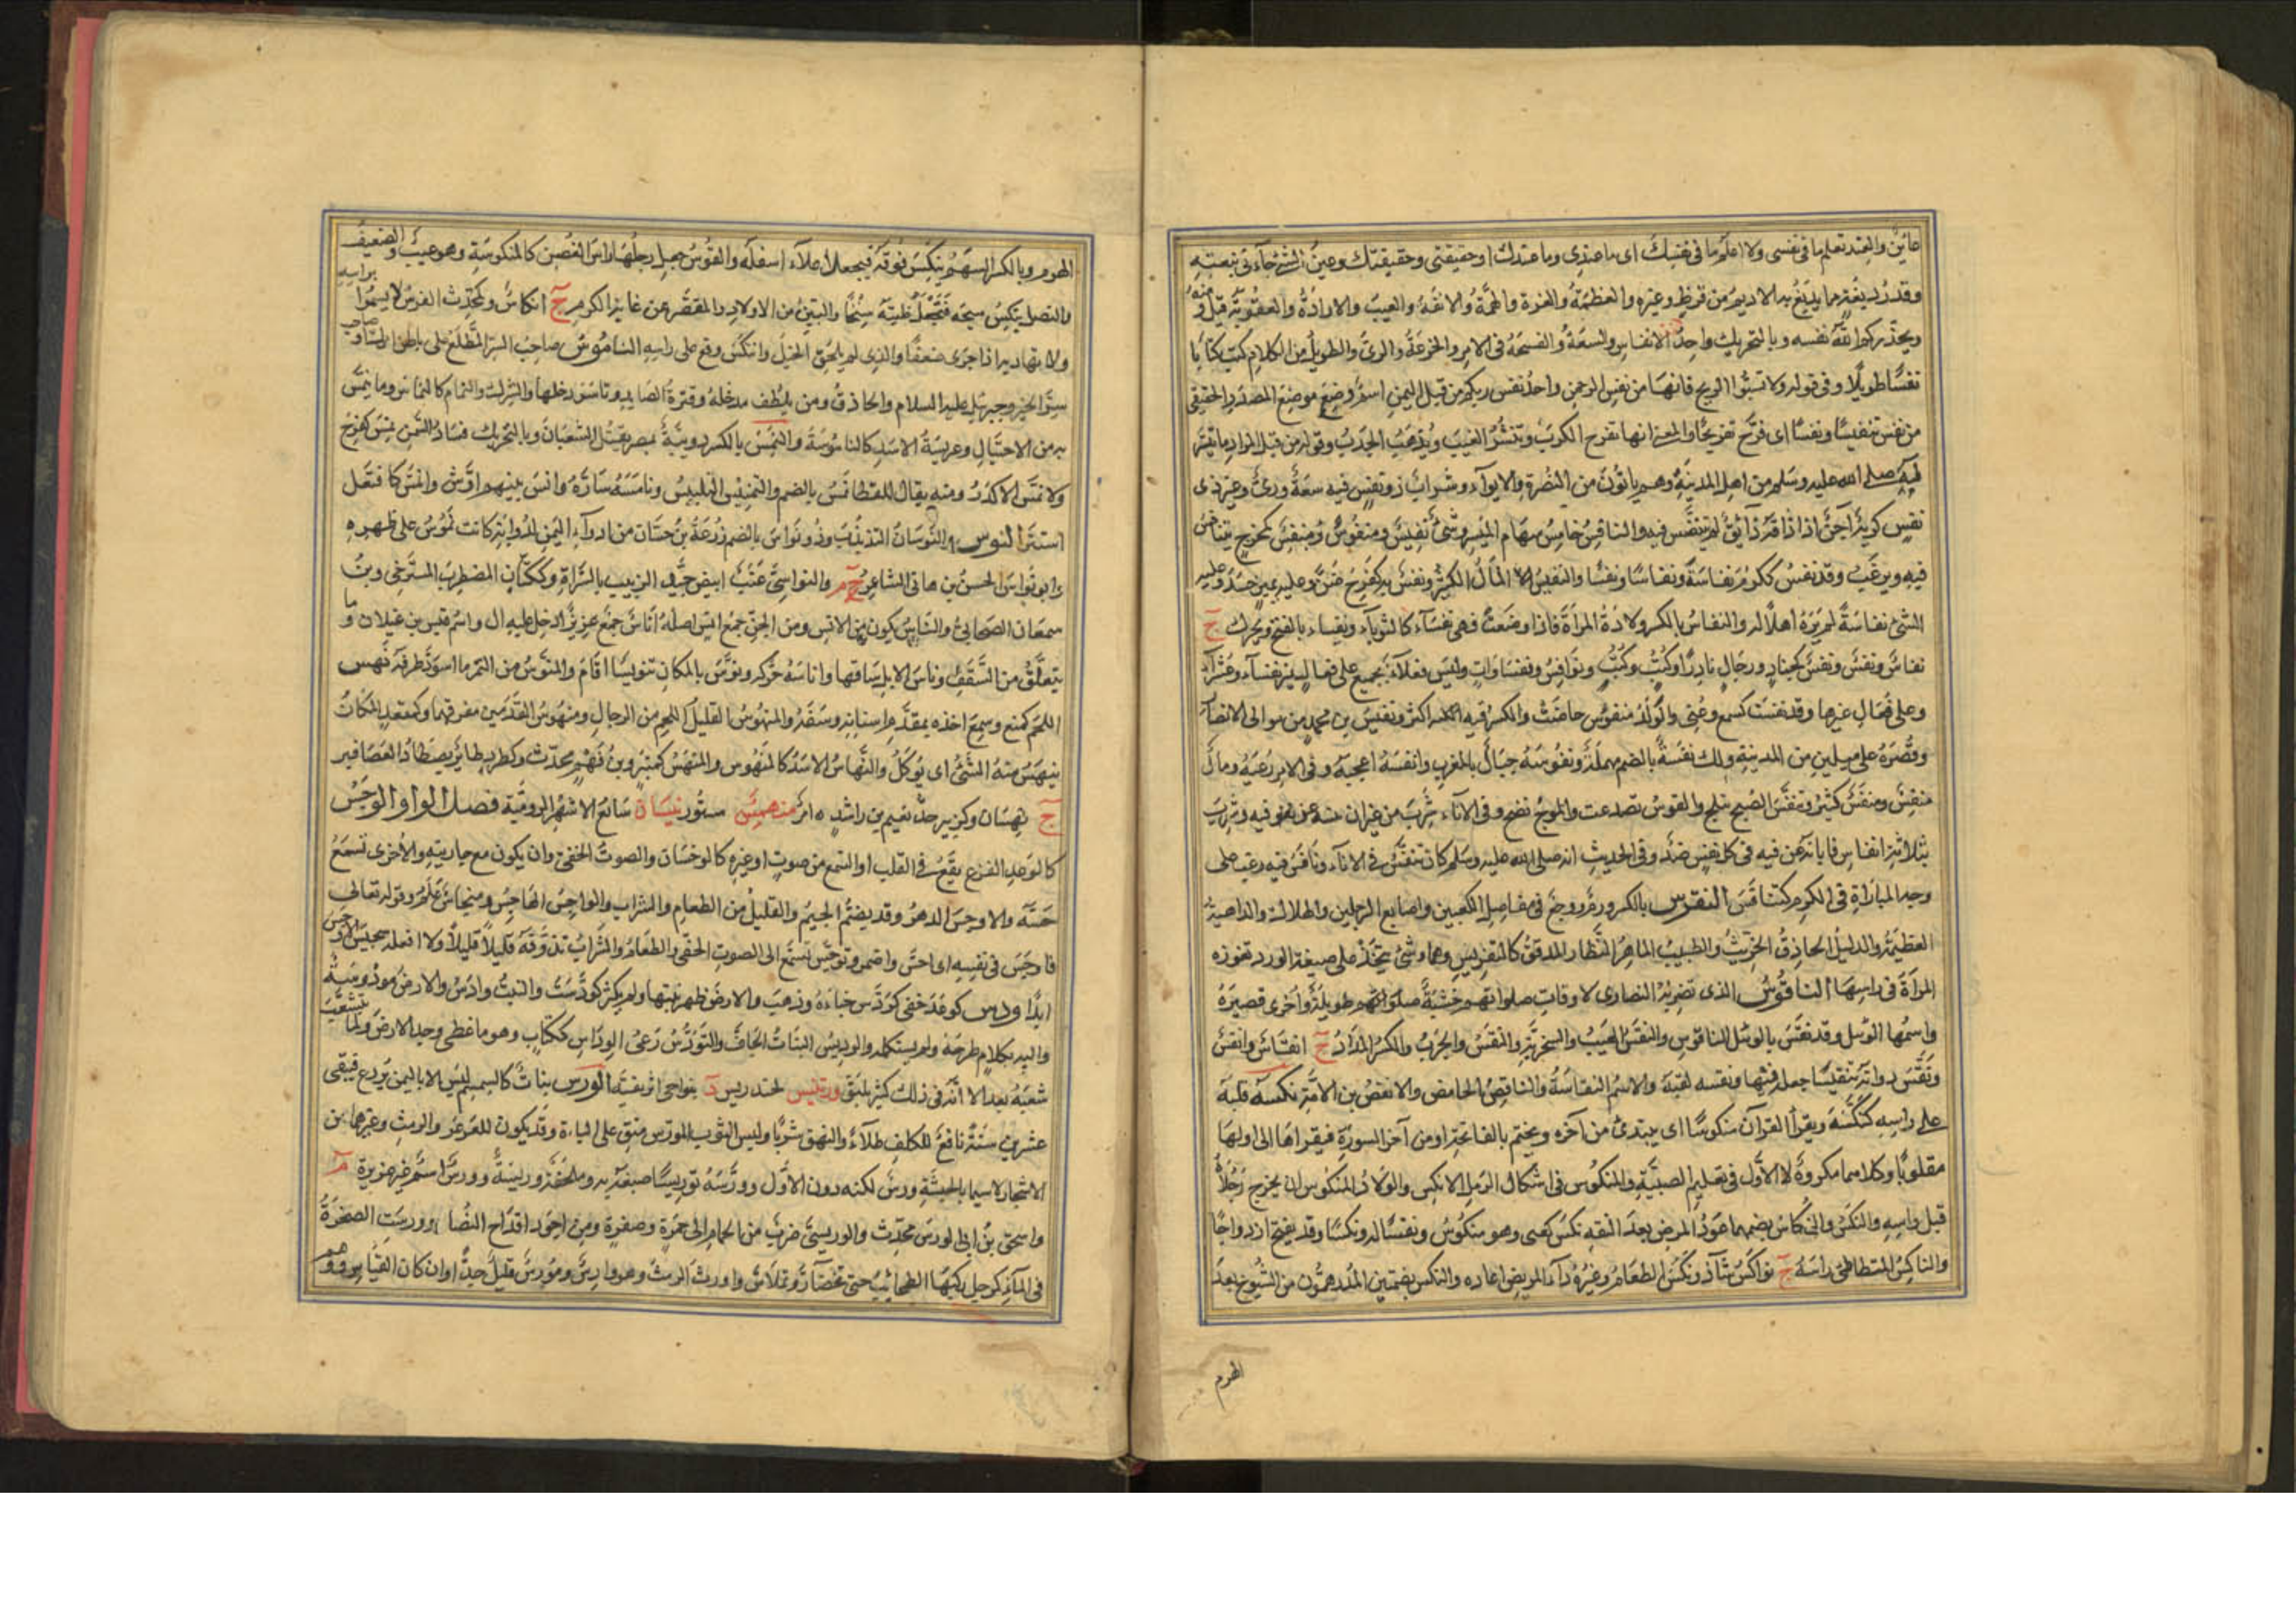 عائن والعند تعلم ما فى نفسى ولا اعلم ما فى نفسك اى ما عندى وما عندك او حقيقتى وحقيقتك وعين الشئ جاء نى بنفسه
وقدر دبغة مما يدبغ به الاديم من قرظ وغيره والعظمة والعزة والهمة والانفة والعيب والارادة والعقوبة قيل ومنه
ويحذركم الله نفسه وبالتحريك واحد الانفاس والسعة والفسحة فى الامر والجرعة والرى والطويل من الكلام كتب كتابا
نفسا طويلا وفى قوله ولا تسبوا الريح فانها من نفس الرحمن واجد نفس ربكم من قبل اليمن اسم وضع موضع المصدر الحقيقى
من نفس تنفيسا ونفسا اى فرج تفريجا والمعنى انها تفرج الكرب وتنشر الغيث وتذهب الجدب وقوله من قبل المراد ما تيسر
له صلى الله عليه وسلم من اهل المدينة وهم يمانون من النصرة والايواء وشراب ذو نفس فيه سعة ورى وغير ذى
نفس كريه آجن اذا ذاقه ذائق لم يتنفس فيه والنافس خامس سهام الميسر وشئ نفيس ومنفوس ومنفس كمخرج يتنافس
فيه ويرغب وقد نفس ككرم نفاسة ونفاسا ونفسا والنفيس المال الكثير ونفس به كفرح ضن وعليه بخير حسد وعليه
الشئ نفاسة لم يره اهلا له والنفاس بالكسر ولادة المرأة فاذا وضعت فهى نفساء كالثوباء ونفساء بالفتح ويحرك ج
نفاس ونفس ونفس كجياد ورخال نادرا وكتب وكتب ونوافس ونفساوات وليس فعلاء يجمع على فعال غير نفساء وعشراء
وعلى فعال غيرها وقد نفست كسمع وعنى والولد منفوس حاضت والكسر فيه اكثر ونفيس بن محمد من موالى الانصار
وقصره على ميلين من المدينة ولك نفسة بالضم مهلة ونفوسة جبال بالمغرب وانفسه اعجبه وفى الامر رغبه ومال
منفس ومنفس كثير وتنفس الصبح تبلج والقوس تصدعت والموج نضح وفى الاناء شرب من غير ان عنه عن فيه وشرب
بثلاثة انفاس فابانه عن فيه فى كل نفس ضد وفى الحديث انه صلى الله عليه وسلم كان يتنفس فى الاناء ونافس فيه رغب على
وجه المباراة فى الكرم كتنافس النقرس بالكسر ورم ووجع فى مفاصل الكعبين واصابع الرجلين والهلاك والداهية
العظيمة والدليل الحاذق الخريت والطبيب الماهر النظار المدقق كالنقريس وهما وشئ يتخذ على صيغة الورد تغرزه
المرأة فى راسها الناقوس الذى تضربه النصارى لاوقات صلواتهم خشبة طويلة واخرى قصيرة
واسمها الوبيل وقد نقس بالوبيل الناقوس والنقس العيب والسخرية والنقس والجرب وبالكسر المداد ج انقاس وانقس
ونقس دواته تنقيسا جعله فيها ونقسه لقبه والاسم النقاسة والناقس الحامض والانقس بن الامة نكسه قلبه
على راسه كنكسه ويقرأ القرآن منكوسا اى يبتدئ من آخره ويختم بالفاتحة او من آخر السورة فيقراها الى اولها
مقلوبا وكلاهما مكروه لا الاول فى تعليم الصبية والمنكوس فى اشكال الرمل الانكيس والولاد المنكوس ان يخرج رجلاه
قبل راسه والنكس والنكاس بضمهما عود المرض بعد النقه نكس كعنى وهو منكوس وتعسا له ونكسا وقد يفتح ازدواجا
والناكس المتطأطئ راسه ج نواكس شاذ ونكس الطعام وغيره داء المريض اعاده والنكس بضمتين المدرهمون من الشيوخ بعد
الهرم
الهرم وبالكسر السهم ينكس فوقه فيجعل اعلاه اسفله والقوس جعل رجلها راس الغصن كالمنكوسة وهو عيب والضعيف
والنصل ينكس سنخه فتجعل ظبته سنخا واليتن من الاولاد والمقصر عن غاية الكرم ج انكاس وكمحدث الفرس لا يسمو براسه
ولا بهاديه اذا جرى ضعفا والذى لم يلحق الخيل وانتكس وقع على راسه الناموس صاحب السر المطلع على باطن امرك او صاحب
سر الخير وجبرئيل عليه السلام والحاذق ومن يلطف مدخله وقترة الصايد ونامس دخلها والشرك والنمام كالنماس وما ينمس
به من الاحتيال وعريسة الاسد كالناموسة والنمس بالكسر دويبة بمصر يقتل الثعبان وبالتحريك فساد السمن نمس كفرح
والانمس الاكدر ومنه يقال للقطا نمس بالضم والتنميس التلبيس ونامسه ساره وانمس بينهم ارش وانمس كافتعل
استتر النوس والنوسان التذبذب وذو نواس بالضم زرعة بن حسان من اذواء اليمن لذؤابة كانت تنوس على ظهره
وابو نواس الحسن بن هانى الشاعر م والنواسى عنب ابيض جيد الزبيب بالسراة وككتان المضطرب المسترخى وبن
سمعان الصحابى والناس يكون من الانس ومن الجن جمع انس اصله اناس جمع عزيز ادخل عليه ال واسم قيس بن عيلان وما
يتعلق من السقف وناس الابل ساقها واناسه حركه ونوس بالمكان تنويسا اقام والمنوس من التمر ما اسود طرفه نهس
اللحم كمنع وسمع اخذه بمقدم اسنانه ونتفه والمنهوس القليل اللحم من الرجال ومنهوس القدمين معرقهما وكمقعد المكان
ينهس منه الشئ اى يؤكل والنهاس الاسد كالمنهوس والمنهس كمنبر وبن فهم محدث وكصرد طائر يصطاد العصافير
ج نهسان وكزبير جد نعيم بن راشد ه امر منهمس ستور نيسان سابع الاشهر الرومية فصل الواو الوجس
كالوعد الفزع يقع فى القلب او السمع من صوت او غيره كالوجسان والصوت الخفى وان يكون مع جاريته والاخرى تسمع
حسه والاوجس الدهر وقد يضم الجيم والقليل من الطعام والشراب والواجس الهاجس وميجاس علم وقوله تعالى
فاوجس فى نفسه اى احس واضمر وتوجس تسمع الى الصوت الخفى والطعام والشراب تذوقه قليلا قليلا ولا افعله سجيس الاوجس
ابدا ودس كوعد خفى كودس خباءه وذهب والارض ظهر نبتها ولم يكثر كودست والنبت وادس والارض مودوسة
واليه بكلام طرحه ولم يستكمله والوديس النبات الجاف والتودس رعى الوداس ككتاب وهو ما غطى وجه الارض ولما يتشعب
شعبه بعد الا انه فى ذلك كثير ملتف ورتنيس كخندريس د بنواحى افريقية الورس نبات كالسمسم ليس الا باليمن يزرع فيبقى
عشرين سنة نافع للكلف طلاء والبهق شربا ولبس الثوب المورس مقو على الباءة وقد يكون للعرعر والرمث وغيرهما من
الاشجار لا سيما بالحبشة ورس لكنه دون الاول وورسه توريسا صبغه به وملحفة وريسة وورس اسم عنز غزيرة م
واسحق بن ابى الورس محدث والورسى ضرب من الحمام الى حمرة وصفرة ومن اجود اقداح النضار وورست الصخرة
فى الماء كوجل ركبها الطحلب حتى تخضار وتملاس واورس الرمث وهو وارس ومورس قليل جدا وان كان القياس وهو